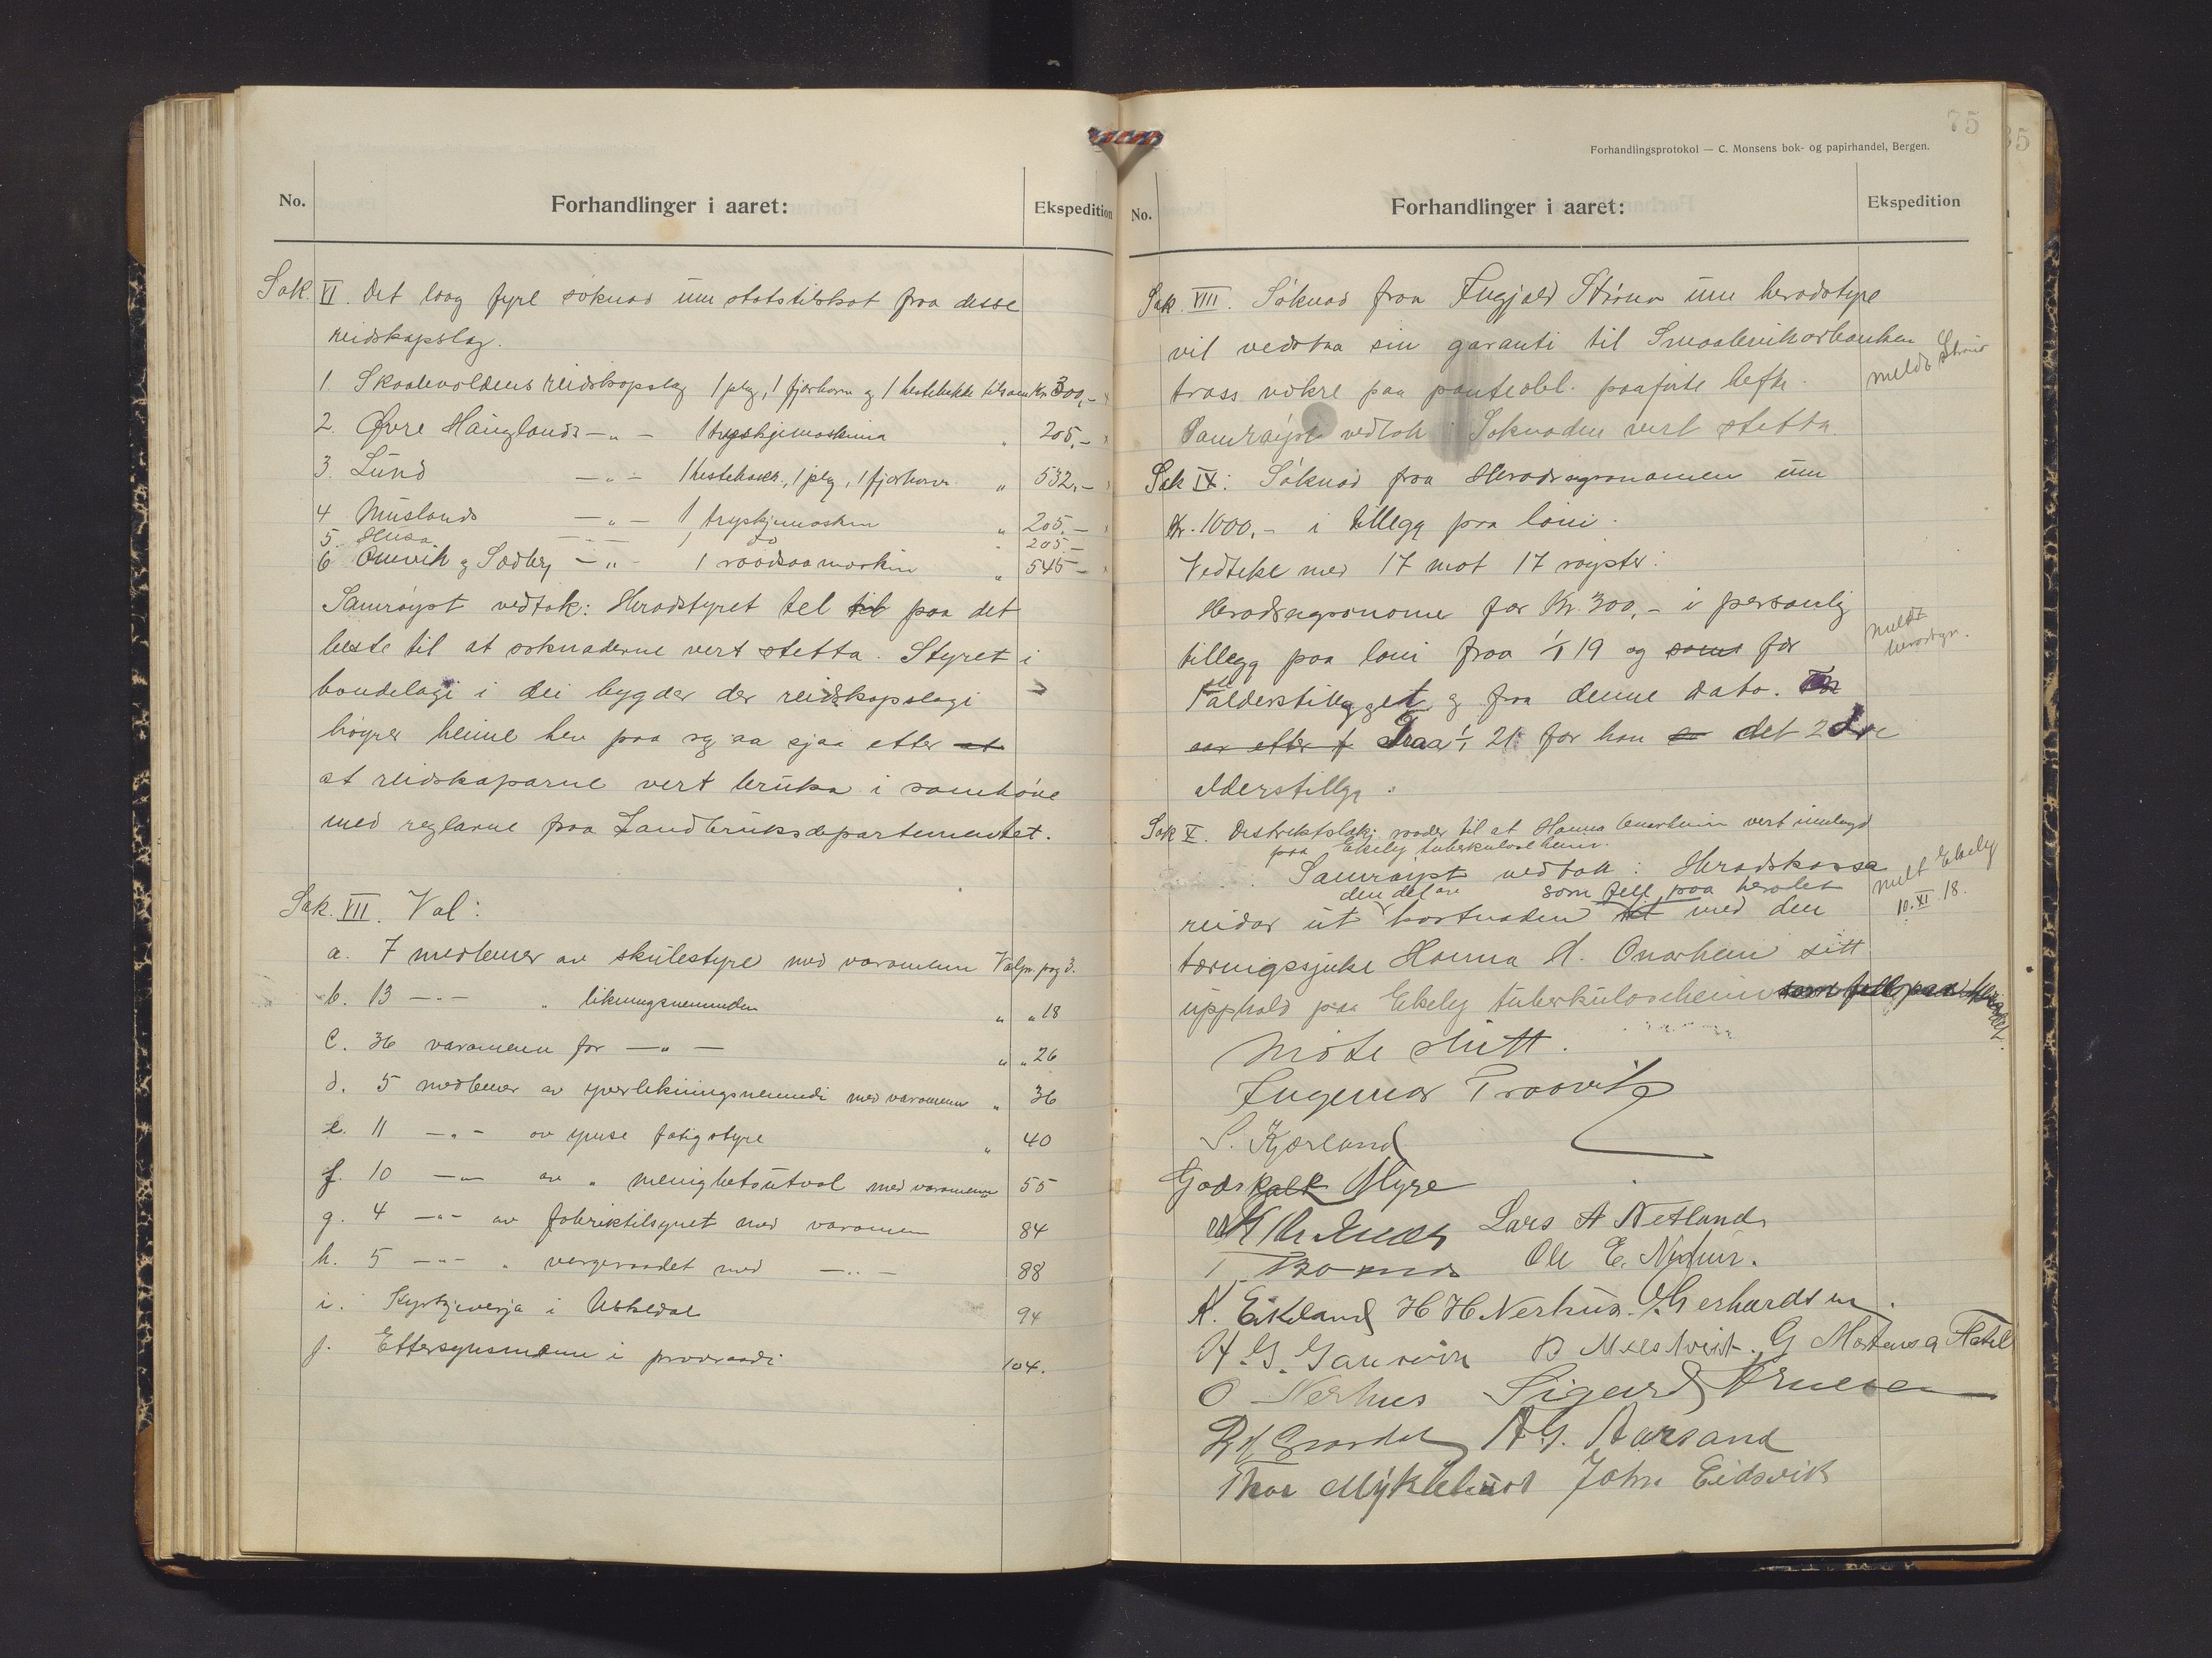 No. Forhandlinger i aaret: Ekspedition
Sak. VI. Det laag fyre søknad um statstilskot fraa desse
reidskapslag.
1. Skaalevoldens reidskapslag 1 plog, 1 fjørharv og 1 hestehakke tilsam Kr. 300,-
2. Øvre Hauglands -„- 1 tryskjemaskina „ 205,-
3. Lund -„- 1 hestehakk., 1 plog, 1 fjørharv „ 532,-
4 Muslands -„- 1 tryskjemaskin „ 205.-
5. Husa -„- 1 do „ 205.-
6 Omvik og Sædberg -„- 1 raadsaamaskin „ 545-
Samrøyst vedtak: Heradstyret tel til paa det
beste til at søknaderne vert stetta. Styret i
bondelagi i dei bygder der reidskapslagi
høyrer heime hev paa seg aa sjaa etter at
at reidskaparne vert bruka i samhøve
med reglarne fraa Landbruksdepartementet.
Sak. VII. Val:
a. 7 medlemer av skulestyre med varamenn Valpr. pag 3.
b. 13 -„- „ likningsnemnden „ „ 18
c. 36 varamenn for -„- „ „ 26
d. 5 medlemer av yverlikningsnemndi med varamenn „ 36
e. 11 -„- av ymse fatigstyre „ 40
f. 10 -„- av „ menighetsutval med varamenn 55
g. 4 -„- av fabriktilsynet med varamenn 84
h. 5 -„- „ vergeraadet med -„- 88
i. Kyrkjeverja i Uskedal 94
j. Ettersynsmenn i provraadi 104.
75
35
Forhandlingsprotokol — C. Monsens bok- og papirhandel, Bergen.
No. Forhandlinger i aaret: Ekspedition
Sak. VIII. Søknad fraa Ingjald Strønd um heradstyre
vil vedtaa sin garanti til Smaabrukarbanken
trass nokre paa panteobl. paaførte hefte.
meldt Strönd
Samrøyst vedtak: Søknaden vert stetta.
Sak IX: Søknad fraa Heradsagronomen um
Kr. 1000,- i tillegg paa løni.
Vedteke med 17 mot 17 røyster:
Heradsagronomen fær Kr. 300,- i personlig
tillegg paa løni fraa 1/1 19 og som fær
meldt heradsgr.
1 alderstillegget og fraa denne dato.
aar etter f Fraa 1/1 21 fær han det 2dre
alderstillegg.
Sak X. Distriktslækj. raader til at Hanna Onarheim vert innlagd
paa Ekely tuberkuloseheim.
Samrøyst vedtak: Heradskassa
den del av som fell paa heradet
reidar ut kostnaden med den
meldt Ekely
10. XI. 18.
tæringssjuke Hanna H. Onarheim sitt
upphald paa Ekely tuberkuloseheim som fell paa heradet.
Møte slutt.
Ingemar Traavik
S. Kjærland
Godskalk Myre
Lars A Netland
Ole E. Nichun.
K. Eikland H H Nerhus. Gerhardsen.
H. G. Ganvik B Mælstveit. G Mortensen Flatebø
O Nerhus Sigurd
A G. Aarsand
Thor Myklebust John Eidsvik